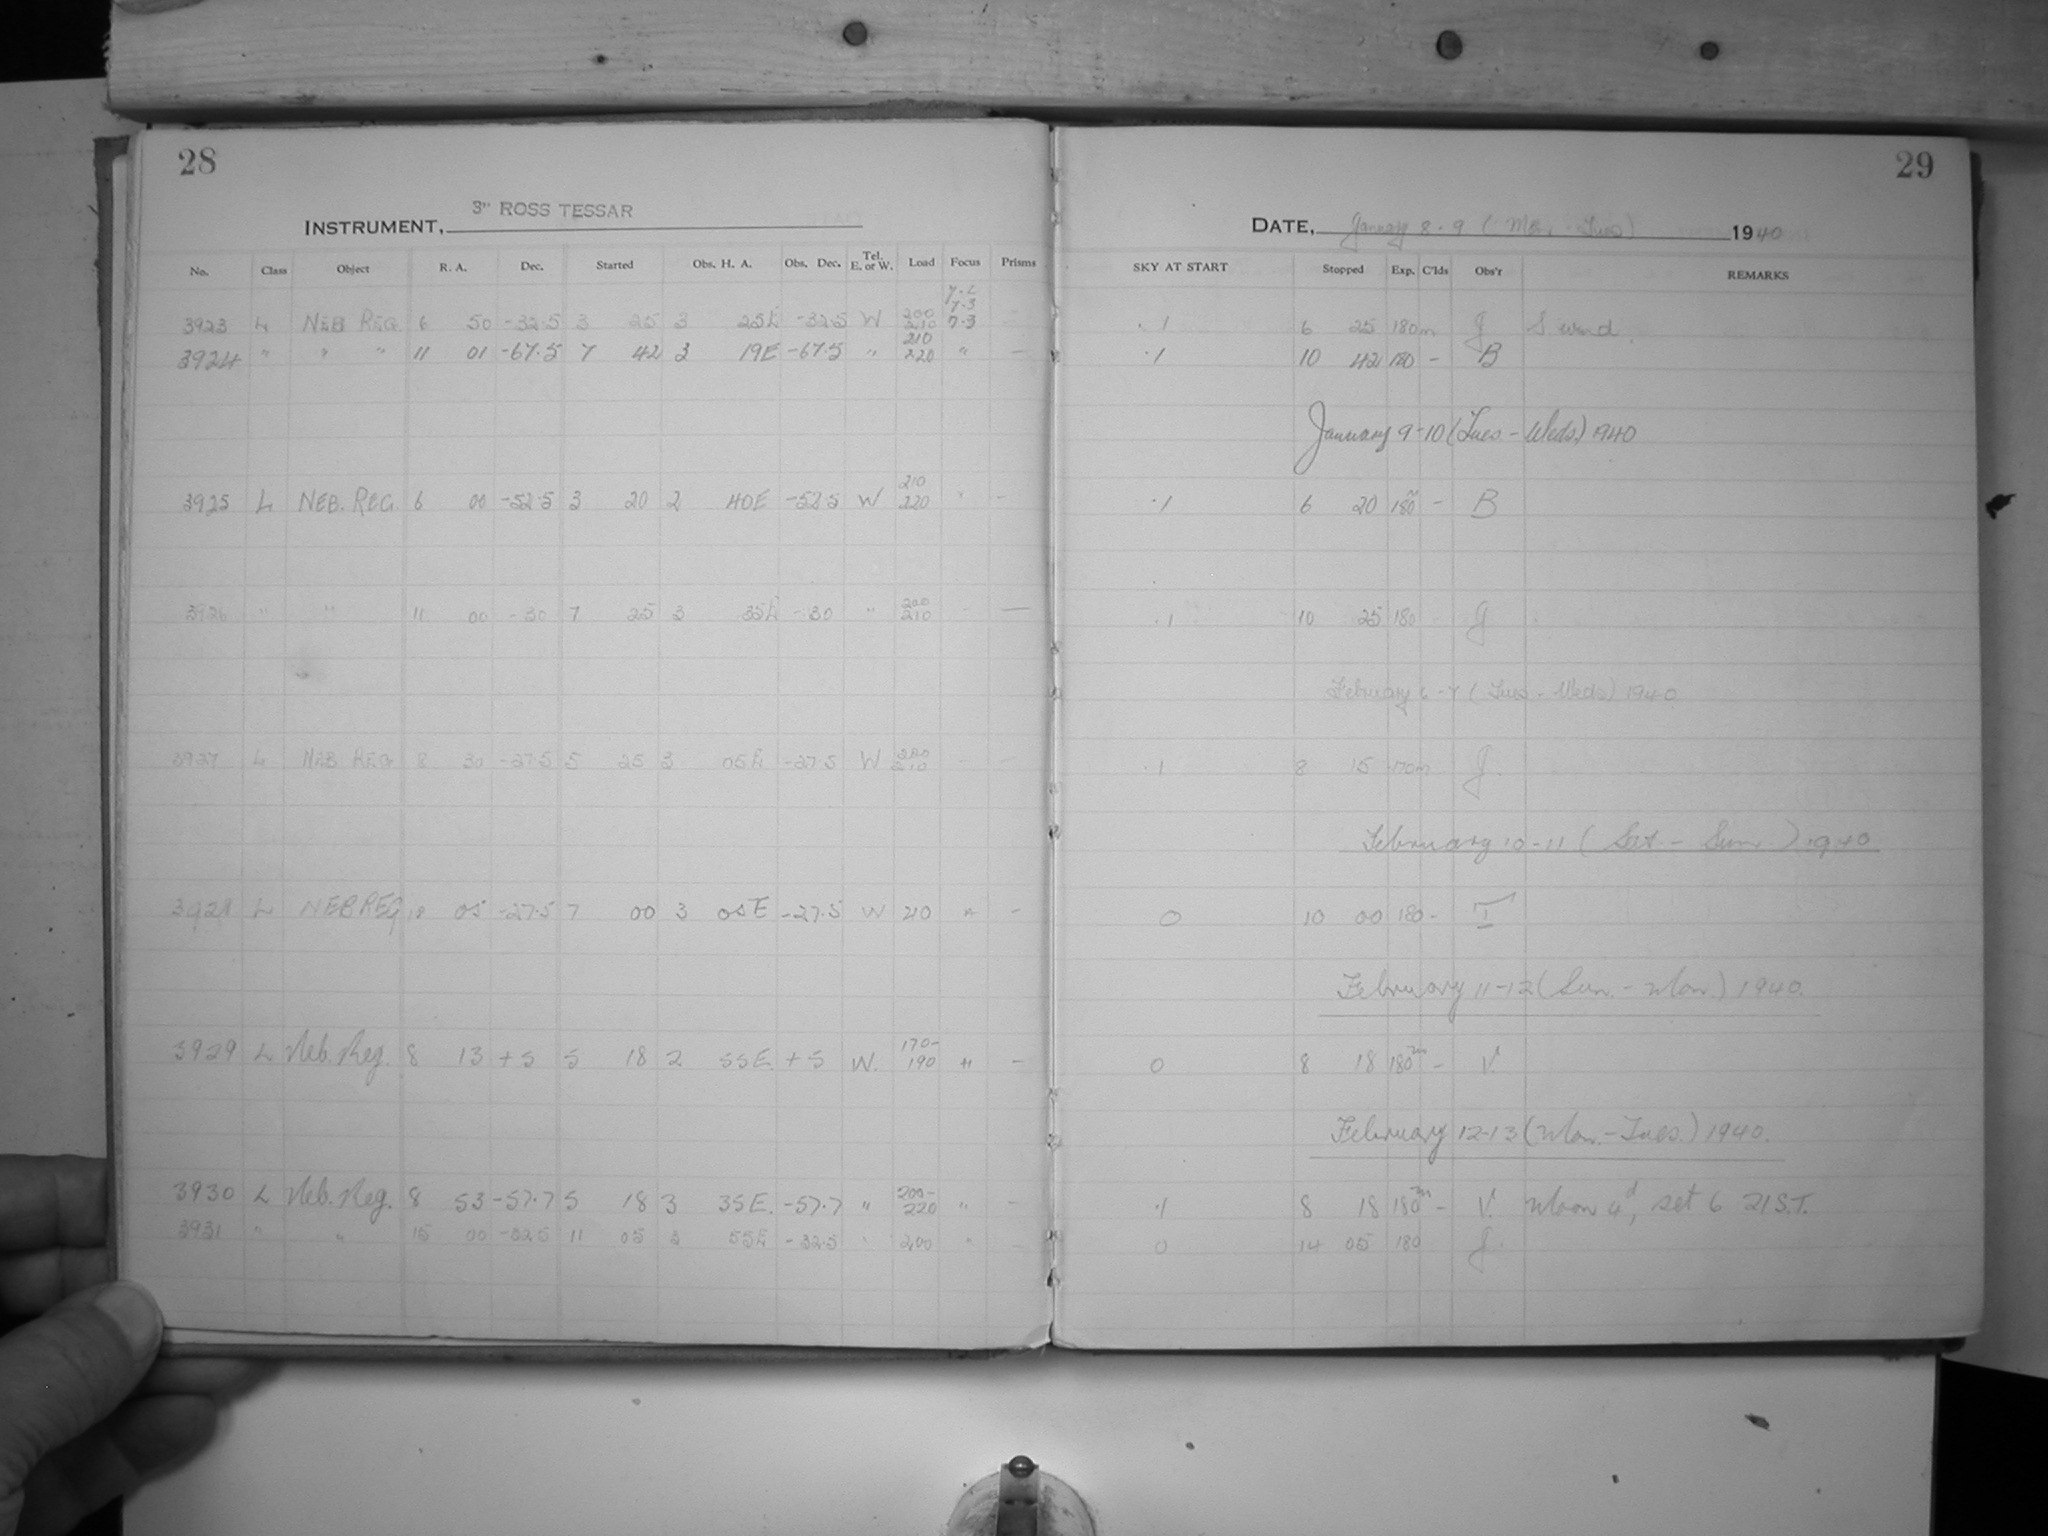 28
3" ROSS TESSAR
INSTRUMENT,
No. Class Object R. A. Dec. Started Obs. H. A. Obs. Dec. Tel. E. or W. Load Focus Prisms
7.2
7.3
3923 L NEB REG. 6 50 -32.5 3 25 3 25E -32.5 W 200 210 7.3
3924 " " " 11 01 -67.5 7 42 3 19E -67.5 " 210 220 " -
3925 L NEB. REG 6 00 -52.5 3 20 2 40E -52.5 W 210 220 " -
3926 " " 11 00 -30 7 25 3 35E -30 " 200 210 - —
3927 L NEB REG 8 30 -27.5 5 25 3 05E -27.5 W 210 - -
L NEB REG 05 -27.5 7 00 3 05E -27.5 W 210 -
3929 L Neb. Reg. 8 13 +5 5 18 2 55E. +5 W. 170- 190 " -
3930 L Neb. Reg. 8 53 -57.7 5 18 3 35E. -57.7 " 200- 220 " -
3931 " " 15 00 -32.5 11 05 3 55E -32.5 " 200 " -
29
DATE, January 8-9 (Mon. - Tues) 1940
SKY AT START Stopped Exp. C'lds Obs'r REMARKS
.1 6 25 180m J S wind.
.1 10 42 180 - B
January 9-10 (Tues - Weds.) 1940
.1 6 20 180m - B
.1 10 25 180 J
February 6-7 (Tues - Weds) 1940
.1 8 15 170m J.
February 10-11 (Sat. - Sun.) 1940
0 10 00 180 - I
February 11-12 (Sun. - Mon.) 1940.
0 8 18 180m - V.
February 12-13 (Mon. - Tues.) 1940.
.1 8 18 180m - V. Moon 4d, set 6 21 S.T.
0 14 05 180 J.